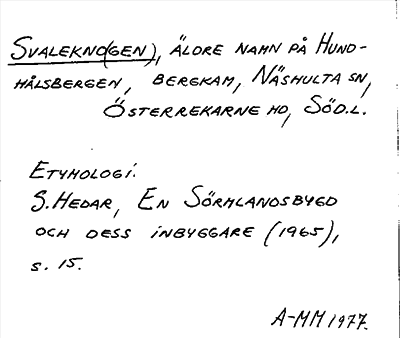 SVALEKNO(GEN), ÄLDRE NAMN PÅ HUND-
HÅLSBERGEN, BERGKAM, NÄSHULTA SN,
ÖSTERREKARNE HD, SÖD.L.
ETYMOLOGI:
S. HEDAR, EN SÖRMLANDSBYGD
OCH DESS INBYGGARE (1965),
s. 15.
A-MM 1977.